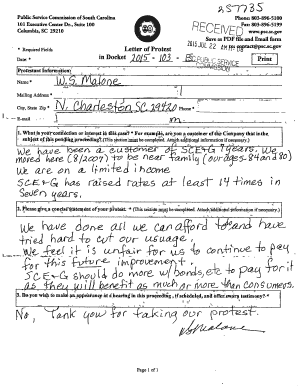 257735
Public Service Commission of South Carolina
101 Executive Center Dr., Suite 100
Columbia, SC 29210
Phone: 803-896-5100
Fax: 803-896-5199
www.psc.sc.gov
RECEIVED
Save as PDF file and Email form
to: contact@psc.sc.gov
2015 JUL 22
* Required Fields
Letter of Protest
Date *
in Docket 2015 - 103 - E
PUBLIC SERVICE
COMMISSION
Print
Protestant Information:
Name * W.S. Malone
Mailing Address *
City, State Zip * N. Charleston, SC 29420 Phone *
E-mail
1. What is your connection or interest in this case? * For example, are you a customer of the Company that is the
subject of this pending proceeding? (This section must be completed. Attach additional information if necessary.)
We have been a customer of SCE&G 7 years. We
moved here (8/2007) to be near family (our ages-84 and 80)
We are on a limited income
SCE&G has raised rates at least 14 times in
seven years.
2. Please give a concise statement of your protest. * (This section must be completed. Attach additional information if necessary.)
We have done all we can afford to and have
tried hard to cut our usuage.
We feel it is unfair for us to continue to pay
for this future improvement.
SCE&G should do more w/bonds, etc to pay for it
as they will benefit as much or more than consumers.
3. Do you wish to make an appearance at a hearing in this proceeding, if scheduled, and offer sworn testimony? *
No, Thank you for taking our protest.
WS Malone
Page 1 of 1